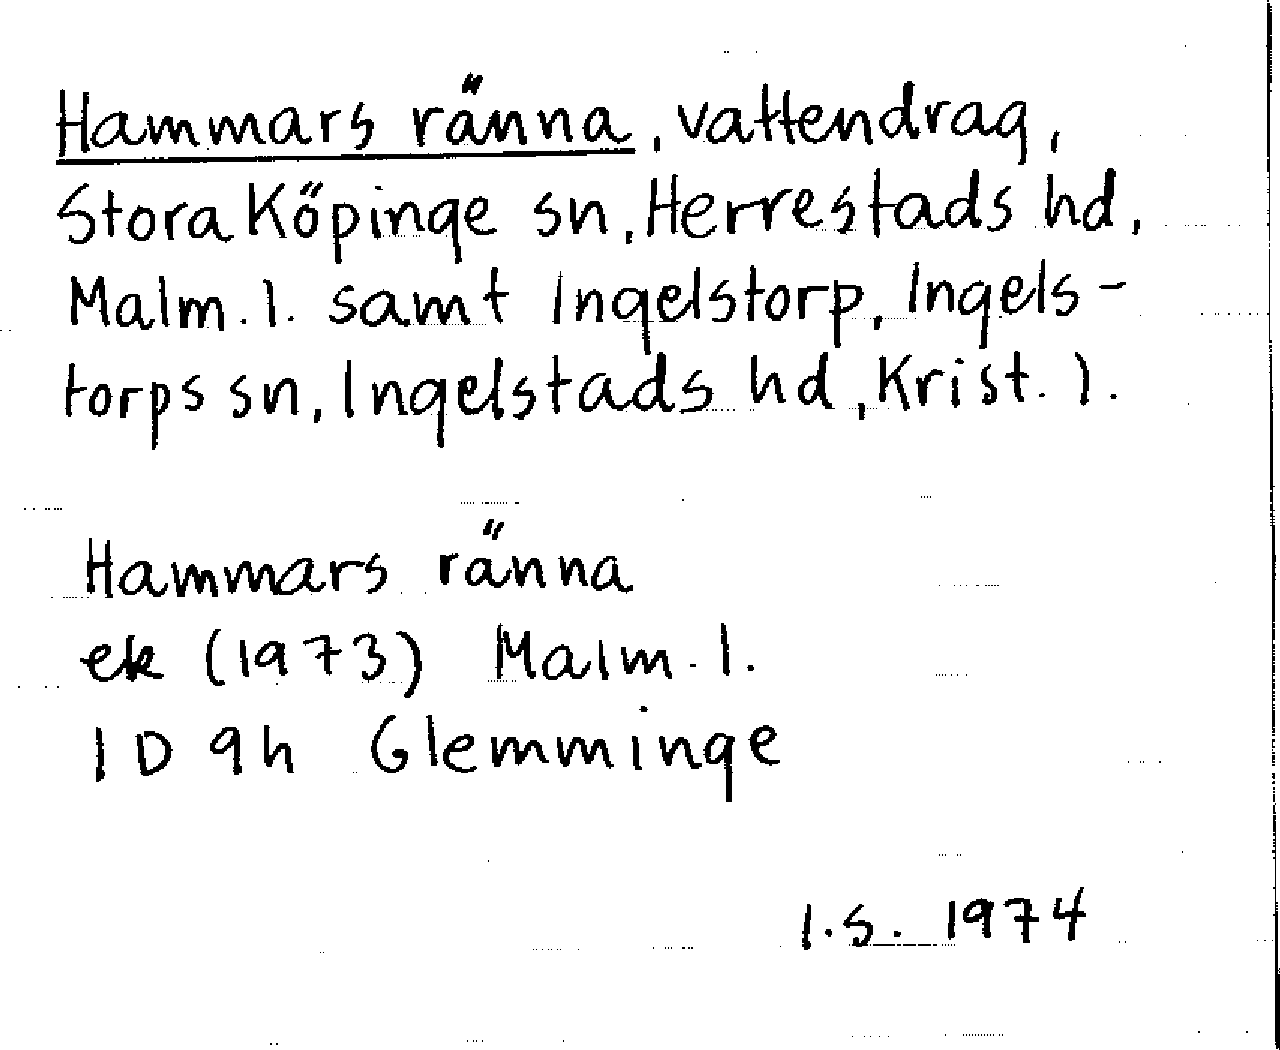 Hammars ränna, vattendrag,
Stora Köpinge sn, Herrestads hd,
Malm. l. samt Ingelstorp, Ingels-
torps sn, Ingelstads hd, Krist. l.
Hammars ränna
ek (1973) Malm. l.
1 D 9h Glemminge
I.S. 1974